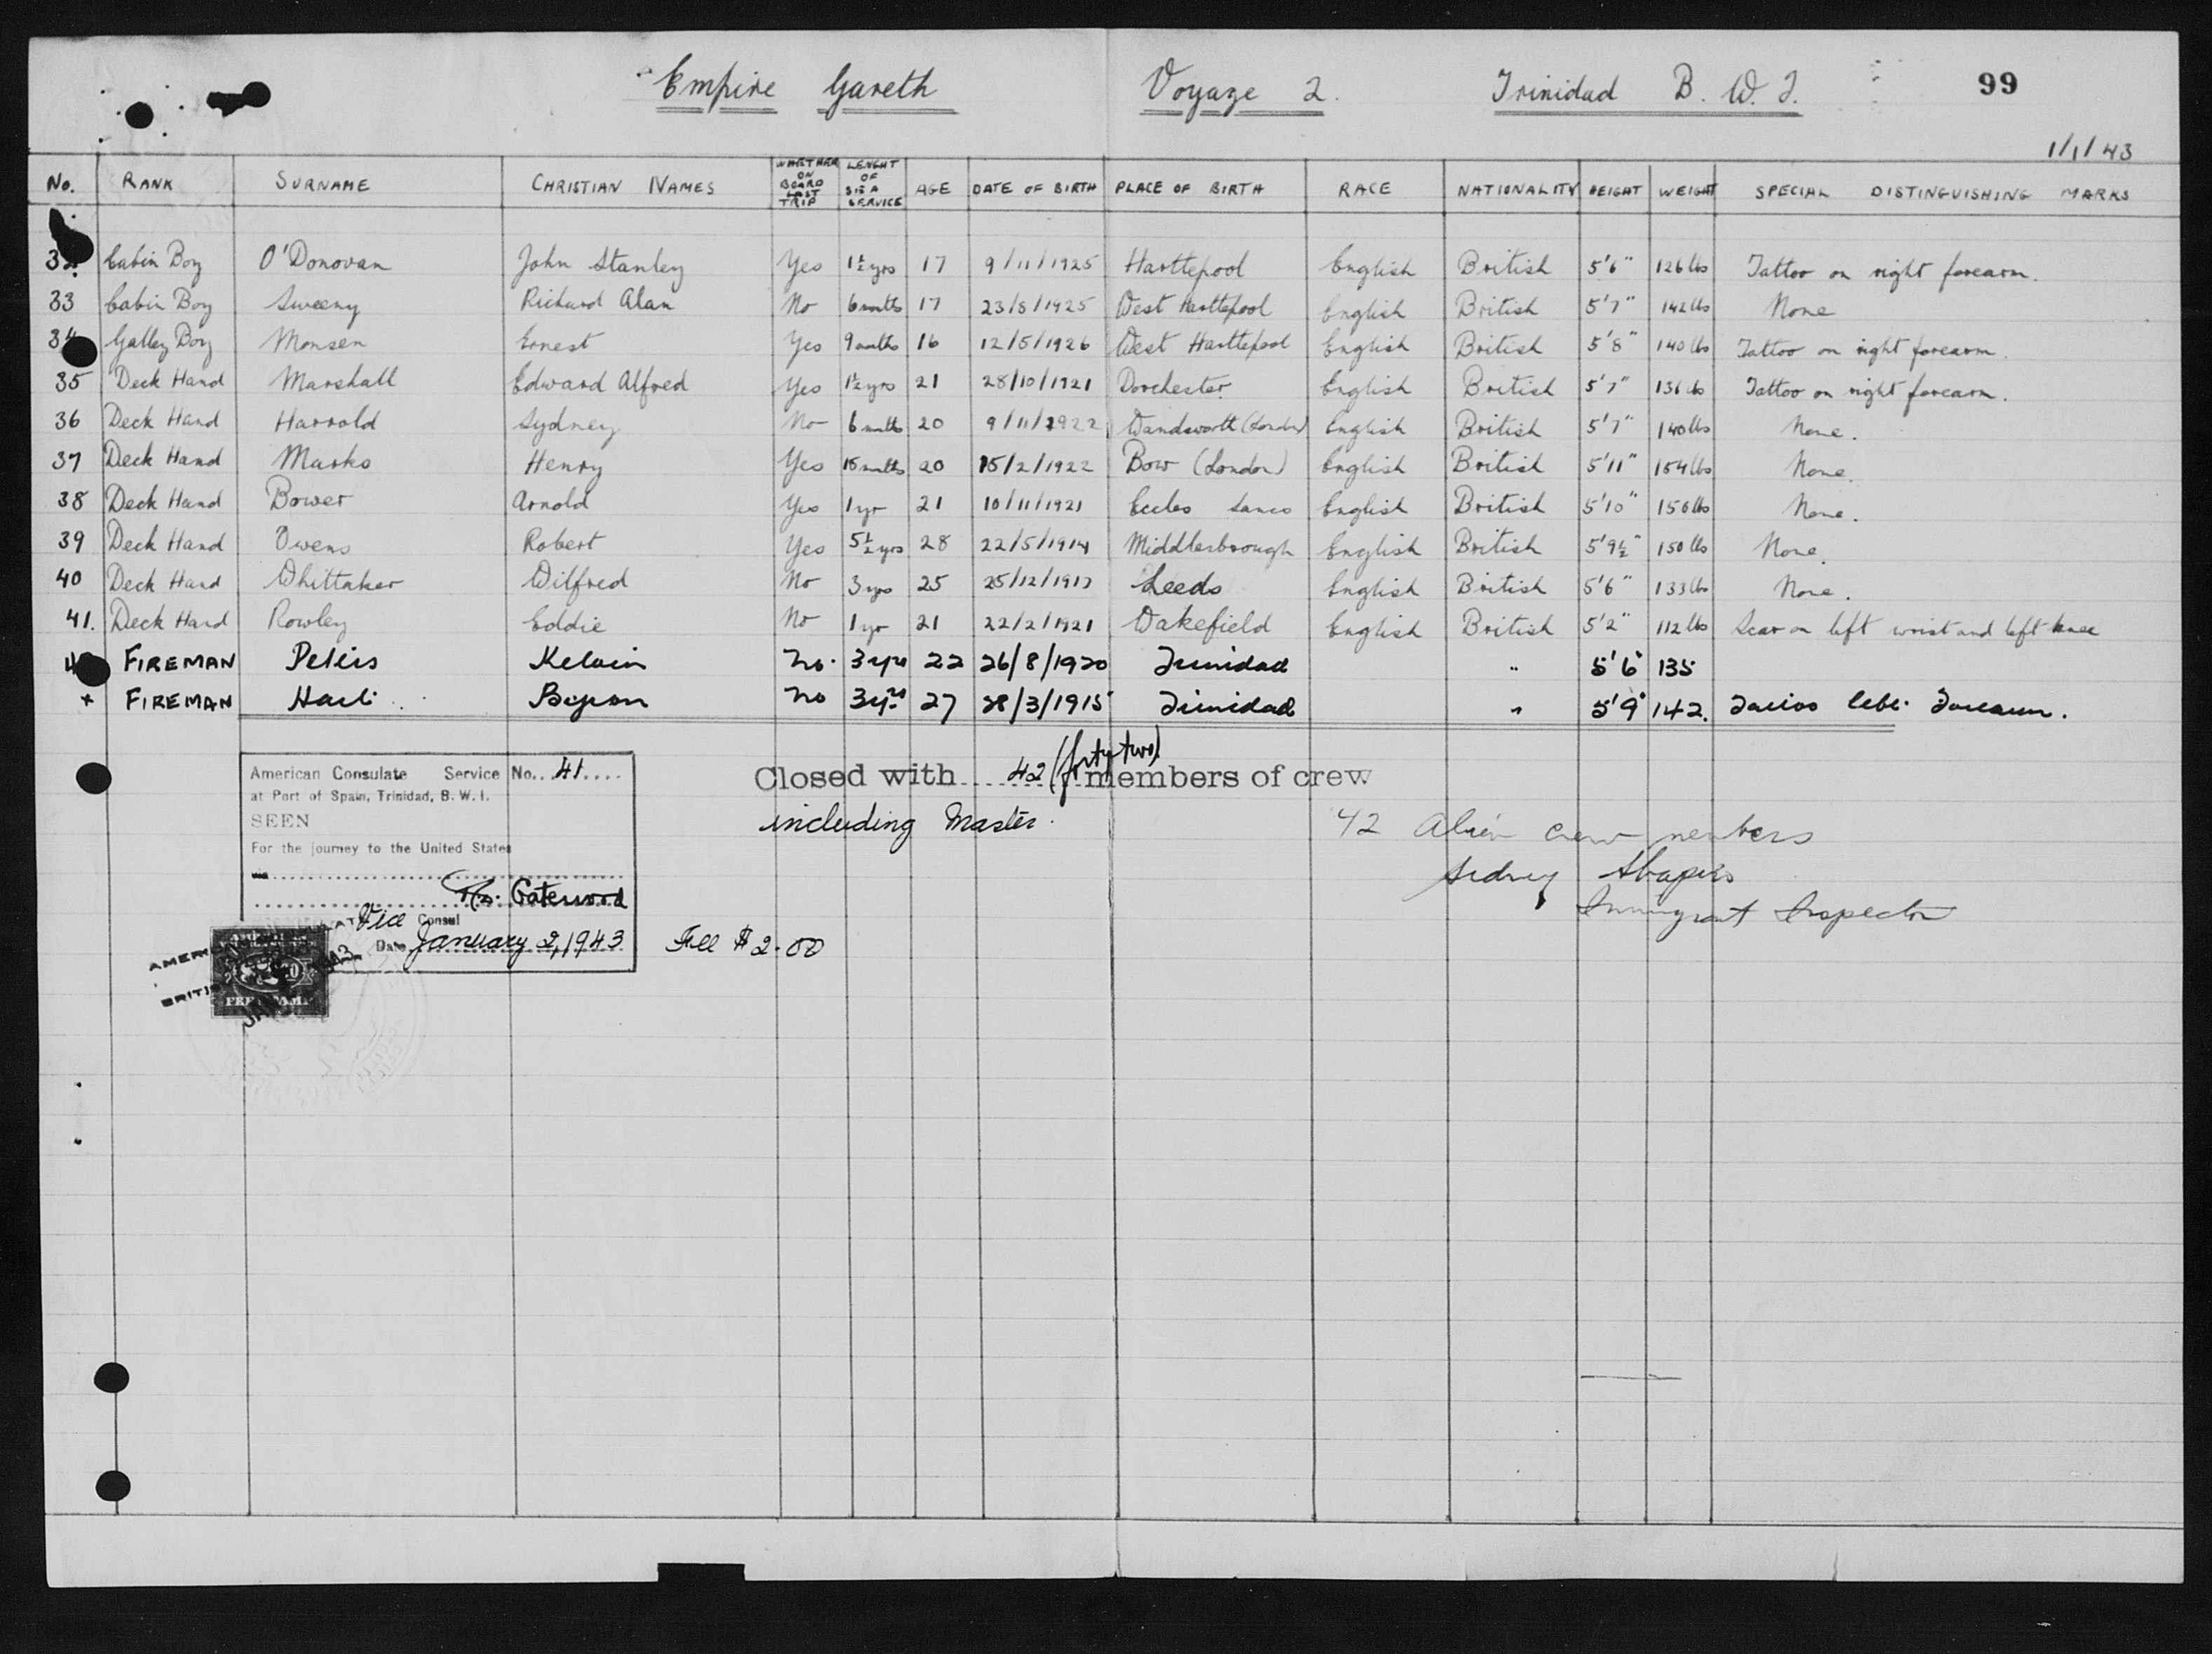 Empire Gareth Voyage 2. Trinidad B. W. I. 99
1/1/43
No. RANK SURNAME CHRISTIAN NAMES WHETHER ON BOARD LAST TRIP LENGHT OF SEA SERVICE AGE DATE OF BIRTH PLACE OF BIRTH RACE NATIONALITY HEIGHT WEIGHT SPECIAL DISTINGUISHING MARKS
Cabin Boy O'Donovan John Stanley Yes 1½ yrs 17 9/11/1925 Hartlepool English British 5'6" 126 lbs Tattoo on right forearm.
33 Cabin Boy Sweeny Richard Alan No 6 mnths 17 23/5/1925 West Hartlepool English British 5'7" 142 lbs None
34 Galley Boy Monsen Ernest Yes 9 mnths 16 12/5/1926 West Hartlepool English British 5'8" 140 lbs Tattoo on right forearm.
35 Deck Hand Marshall Edward Alfred Yes 1½ yrs 21 28/10/1921 Dorchester English British 5'7" 136 lbs Tattoo on right forearm.
36 Deck Hand Harrold Sydney No 6 mnths 20 9/11/1922 Wandsworth (London) English British 5'7" 140 lbs None.
37 Deck Hand Marks Henry Yes 18 mnths 20 15/2/1922 Bow (London) English British 5'11" 154 lbs None.
38 Deck Hand Bower Arnold Yes 1 yr 21 10/11/1921 Eccles Lancs English British 5'10" 156 lbs None.
39 Deck Hand Owens Robert Yes 5½ yrs 28 22/5/1914 Middlesbrough English British 5'9½" 150 lbs None.
40 Deck Hand Whittaker Wilfred No 3 yrs 25 25/12/1917 Leeds English British 5'6" 133 lbs None.
41. Deck Hand Rowley Eddie No 1 yr 21 22/2/1921 Wakefield English British 5'2" 112 lbs Scar on left wrist and left knee
FIREMAN Peters Kelvin No. 3 yrs 22 26/8/1920 Trinidad " 5'6" 135
+ FIREMAN Byron No 3 yrs 27 28/3/1915 Trinidad " 5'9" 142. Forearm.
American Consulate Service No. 41
at Port of Spain, Trinidad, B. W. I.
SEEN
For the journey to the United States
via
Gatewood
Vice Consul
Date January 2, 1943 Fee $2.00
Closed with 42 (forty two) members of crew
including Master.
42 Alien crew members
Sidney Shapiro
Immigrant Inspector